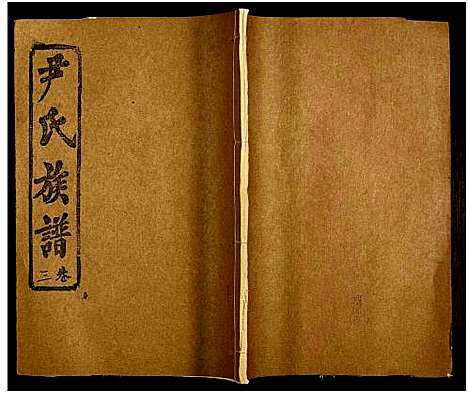 尹氏族譜
卷三